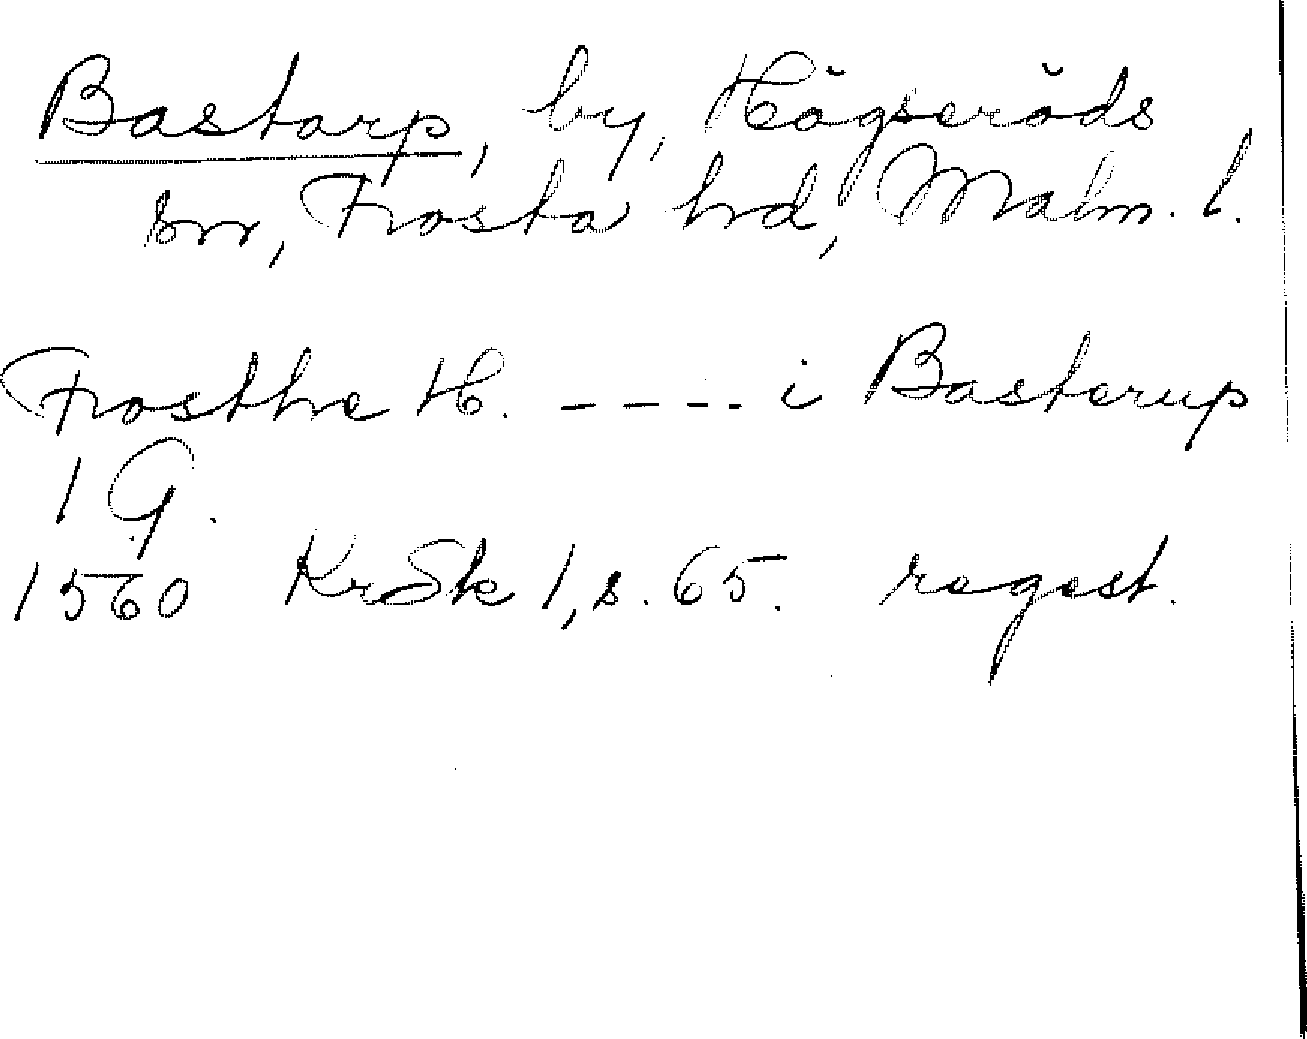 Bastarp, by, Högseröds
sn, Frosta hd, Malm. l.
Frosthe H. ---- i Basterup
1 G.
1560 KrSk 1, s. 65. regest.